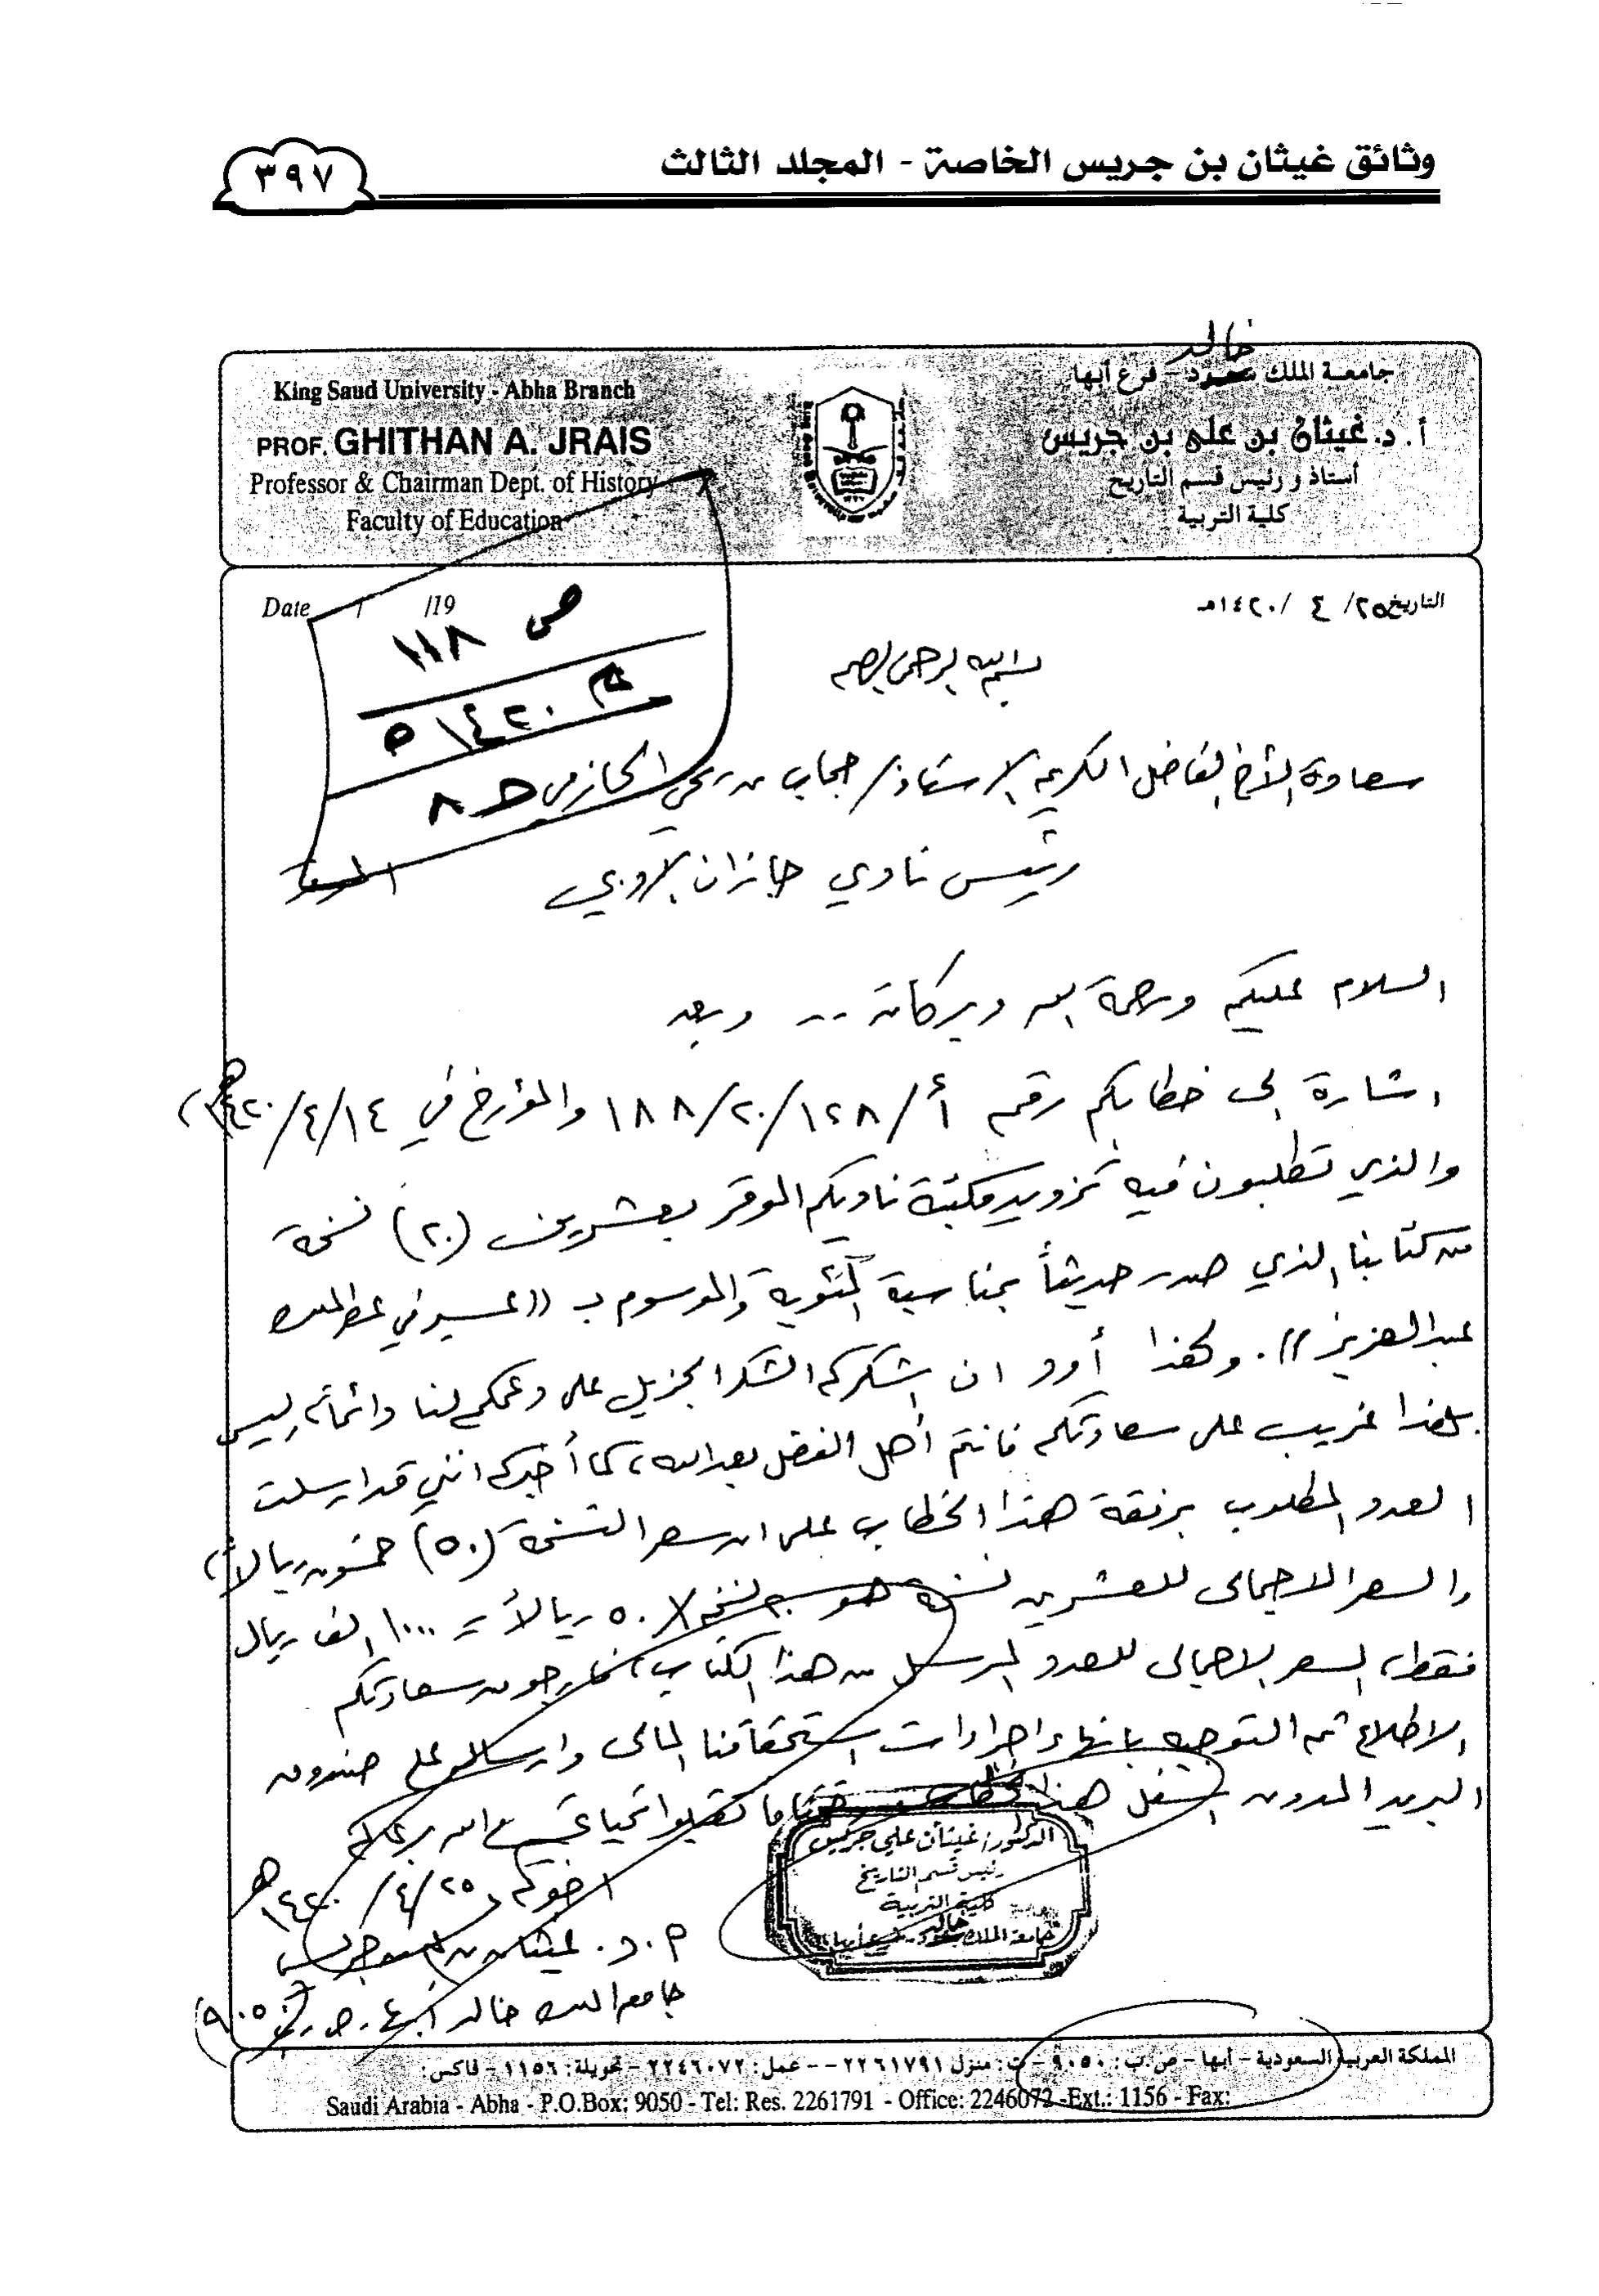 وثائق غيثان بن جريس الخاصة - المجلد الثالث
٣٩٧
خالد
جامعة الملك سعود - فرع أبها
أ. د. غيثان بن علي بن جريس
أستاذ ورئيس قسم التاريخ
كلية التربية
King Saud University - Abha Branch
PROF. GHITHAN A. JRAIS
Professor & Chairman Dept. of History
Faculty of Education
التاريخ ٢٥/ ٤ /١٤٢٠هـ
Date / /19
ص ١١٨
١٤٢٠ هـ
ح ٨
بسم الله الرحمن الرحيم
سعادة الأخ الفاضل الكريم الاستاذ/ حجاب بن يحيى الحازمي
رئيس نادي جازان الأدبي المحترم
السلام عليكم ورحمة الله وبركاته -- وبعد
اشارة إلى خطابكم رقم أ/١٢٨/٢٠/١٨٨ والمؤرخ في ١٤/٤/١٤٢٠هـ،
والذي تطلبون فيه تزويد مكتبة ناديكم الموقر بعشرين (٢٠) نسخة
من كتابنا الذي صدر حديثاً بمناسبة المئوية والموسوم بـ ((عسير في عهد الملك
عبدالعزيز)). ولهذا أود ان اشكركم الشكر الجزيل على دعمكم لنا دائماً، وليس
بهذا غريب على سعادتكم فانتم أهل الفضل بعد الله، كما أخبركم انني قد ارسلت
العدد المطلوب برفقة هذا الخطاب على ان سعر النسخة (٥٠) خمسون ريالاً،
والسعر الاجمالى للعشرين نسخة هو ٢٠ نسخة × ٥٠ ريالاً = ١٠٠٠ الف ريال
فقط، السعر الاجمالى للعدد المرسل من هذا الكتاب، نرجو من سعادتكم
الاطلاع ثم التوجيه بانهاء اجراءات استحقاقنا المالى وارساله على صندوق
البريد المدون اسفل هذا الخطاب وختاما تقبلوا تحياتي والله يرعاكم
اخوكم ٢٥/ ٤/ ١٤٢٠هـ
أ. د. غيثان بن علي بن جريس
جامعة الملك خالد أبها - ص.ب (٩٠٥٠)
الدكتور/ غيثان علي جريس
رئيس قسم التاريخ
كلية التربية
جامعة الملك خالد - أبها
المملكة العربية السعودية - أبها - ص.ب: ٩٠٥٠ - ت: منزل ٢٢٦١٧٩١ -- عمل: ٢٢٤٦٠٧٢ - تحويلة: ١١٥٦ - فاكس:
Saudi Arabia - Abha - P.O.Box: 9050 - Tel: Res. 2261791 - Office: 2246072 -Ext.: 1156 - Fax: